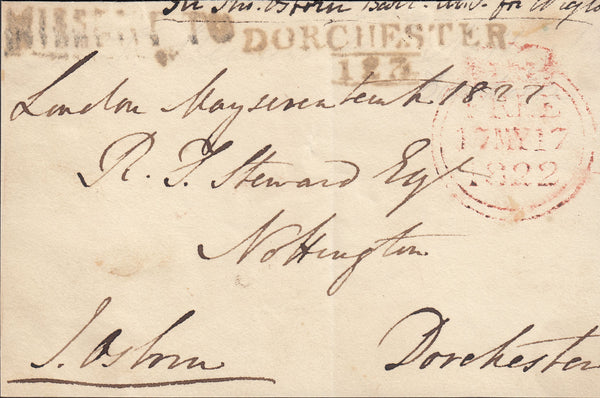 Sir Jno. Osborn Bart. M.P. for Wigto
MISSENT TO
DORCHESTER
123
London May seventeenth 1822
FREE
17 MY 17
1822
R. T. Steward Esqr
Nottington
J. Osborn
Dorchester